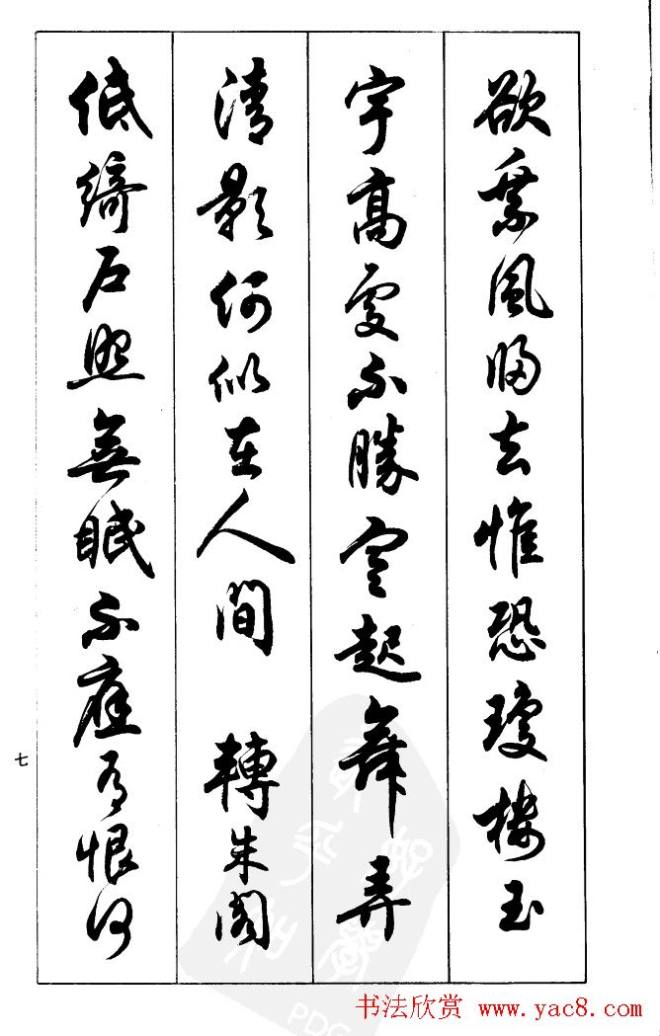 欲乘風歸去惟恐瓊樓玉
宇高處不勝寒起舞弄
清影何似在人間 轉朱閣
低綺户照無眠不應有恨何
七
书法欣赏 www.yac8.com
PDG